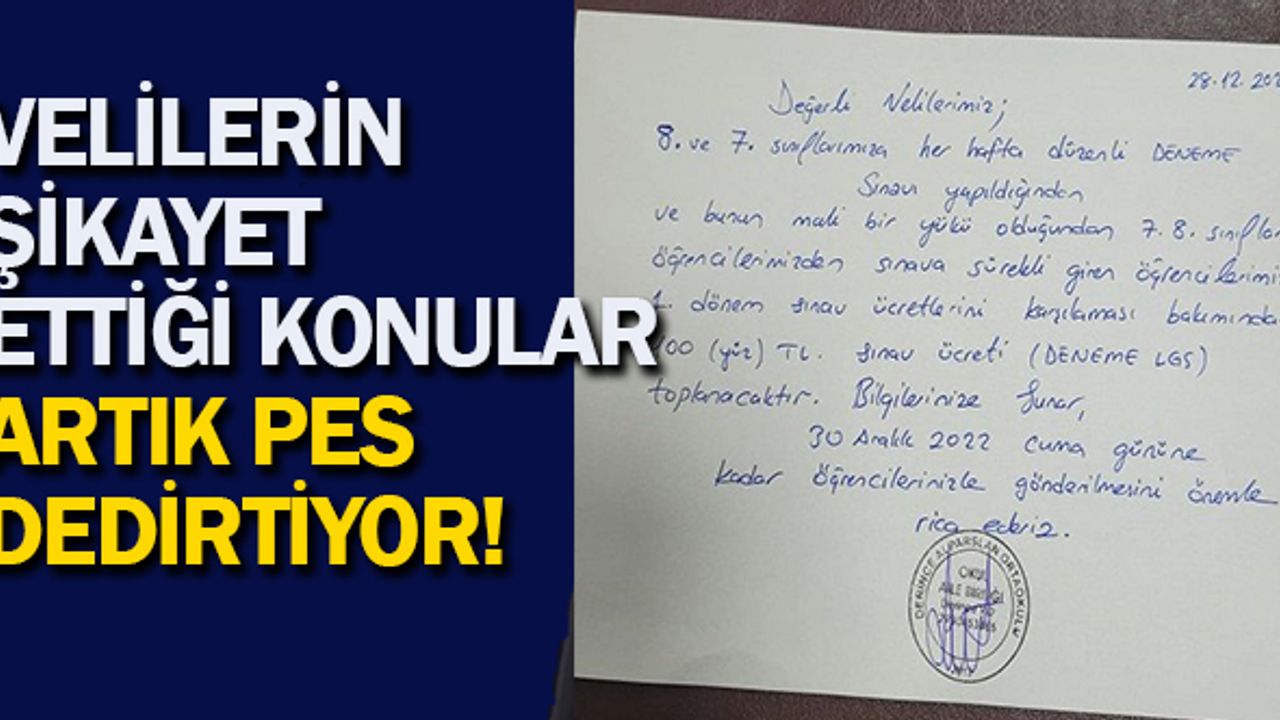 VELİLERİN
ŞİKAYET
ETTİĞİ KONULAR
ARTIK PES
DEDİRTİYOR!
28.12.202
Değerli Velilerimiz;
8. ve 7. sınıflarımıza her hafta düzenli DENEME
Sınavı yapıldığından
ve bunun mali bir yükü olduğundan 7. 8. sınıflar
öğrencilerimizden sınava sürekli giren öğrencilerimi
1. dönem sınav ücretlerini karşılaması bakımında
100 (yüz) TL. sınav ücreti (DENEME LGS)
toplanacaktır. Bilgilerinize Sunar,
30 Aralık 2022 cuma gününe
kadar öğrencilerinizle gönderilmesini önemle
rica ederiz.
DERİNCE ALPARSLAN ORTAOKULU
OKUL
AİLE BİRLİĞİ